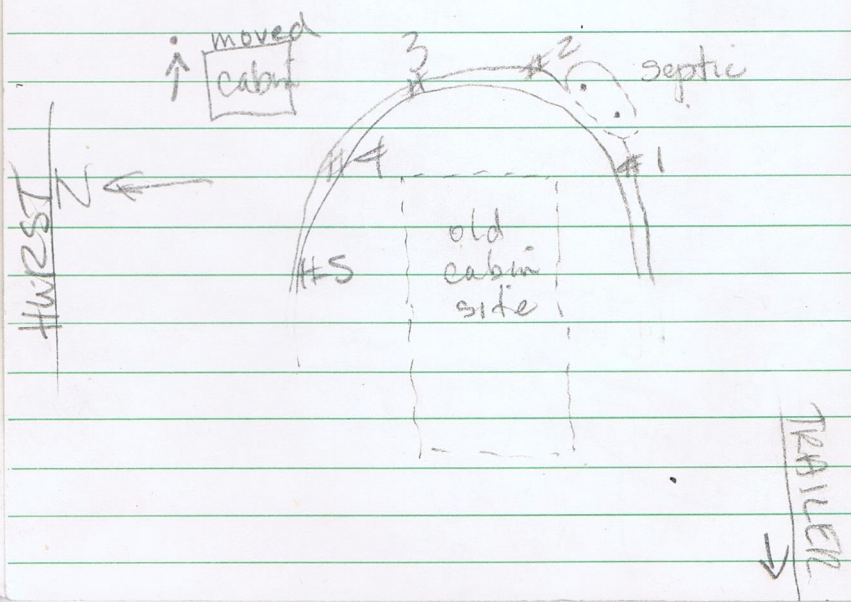 moved
cabin
3
#2
septic
#4
#1
N
HURST
#5
old
cabin
site
TRAILER